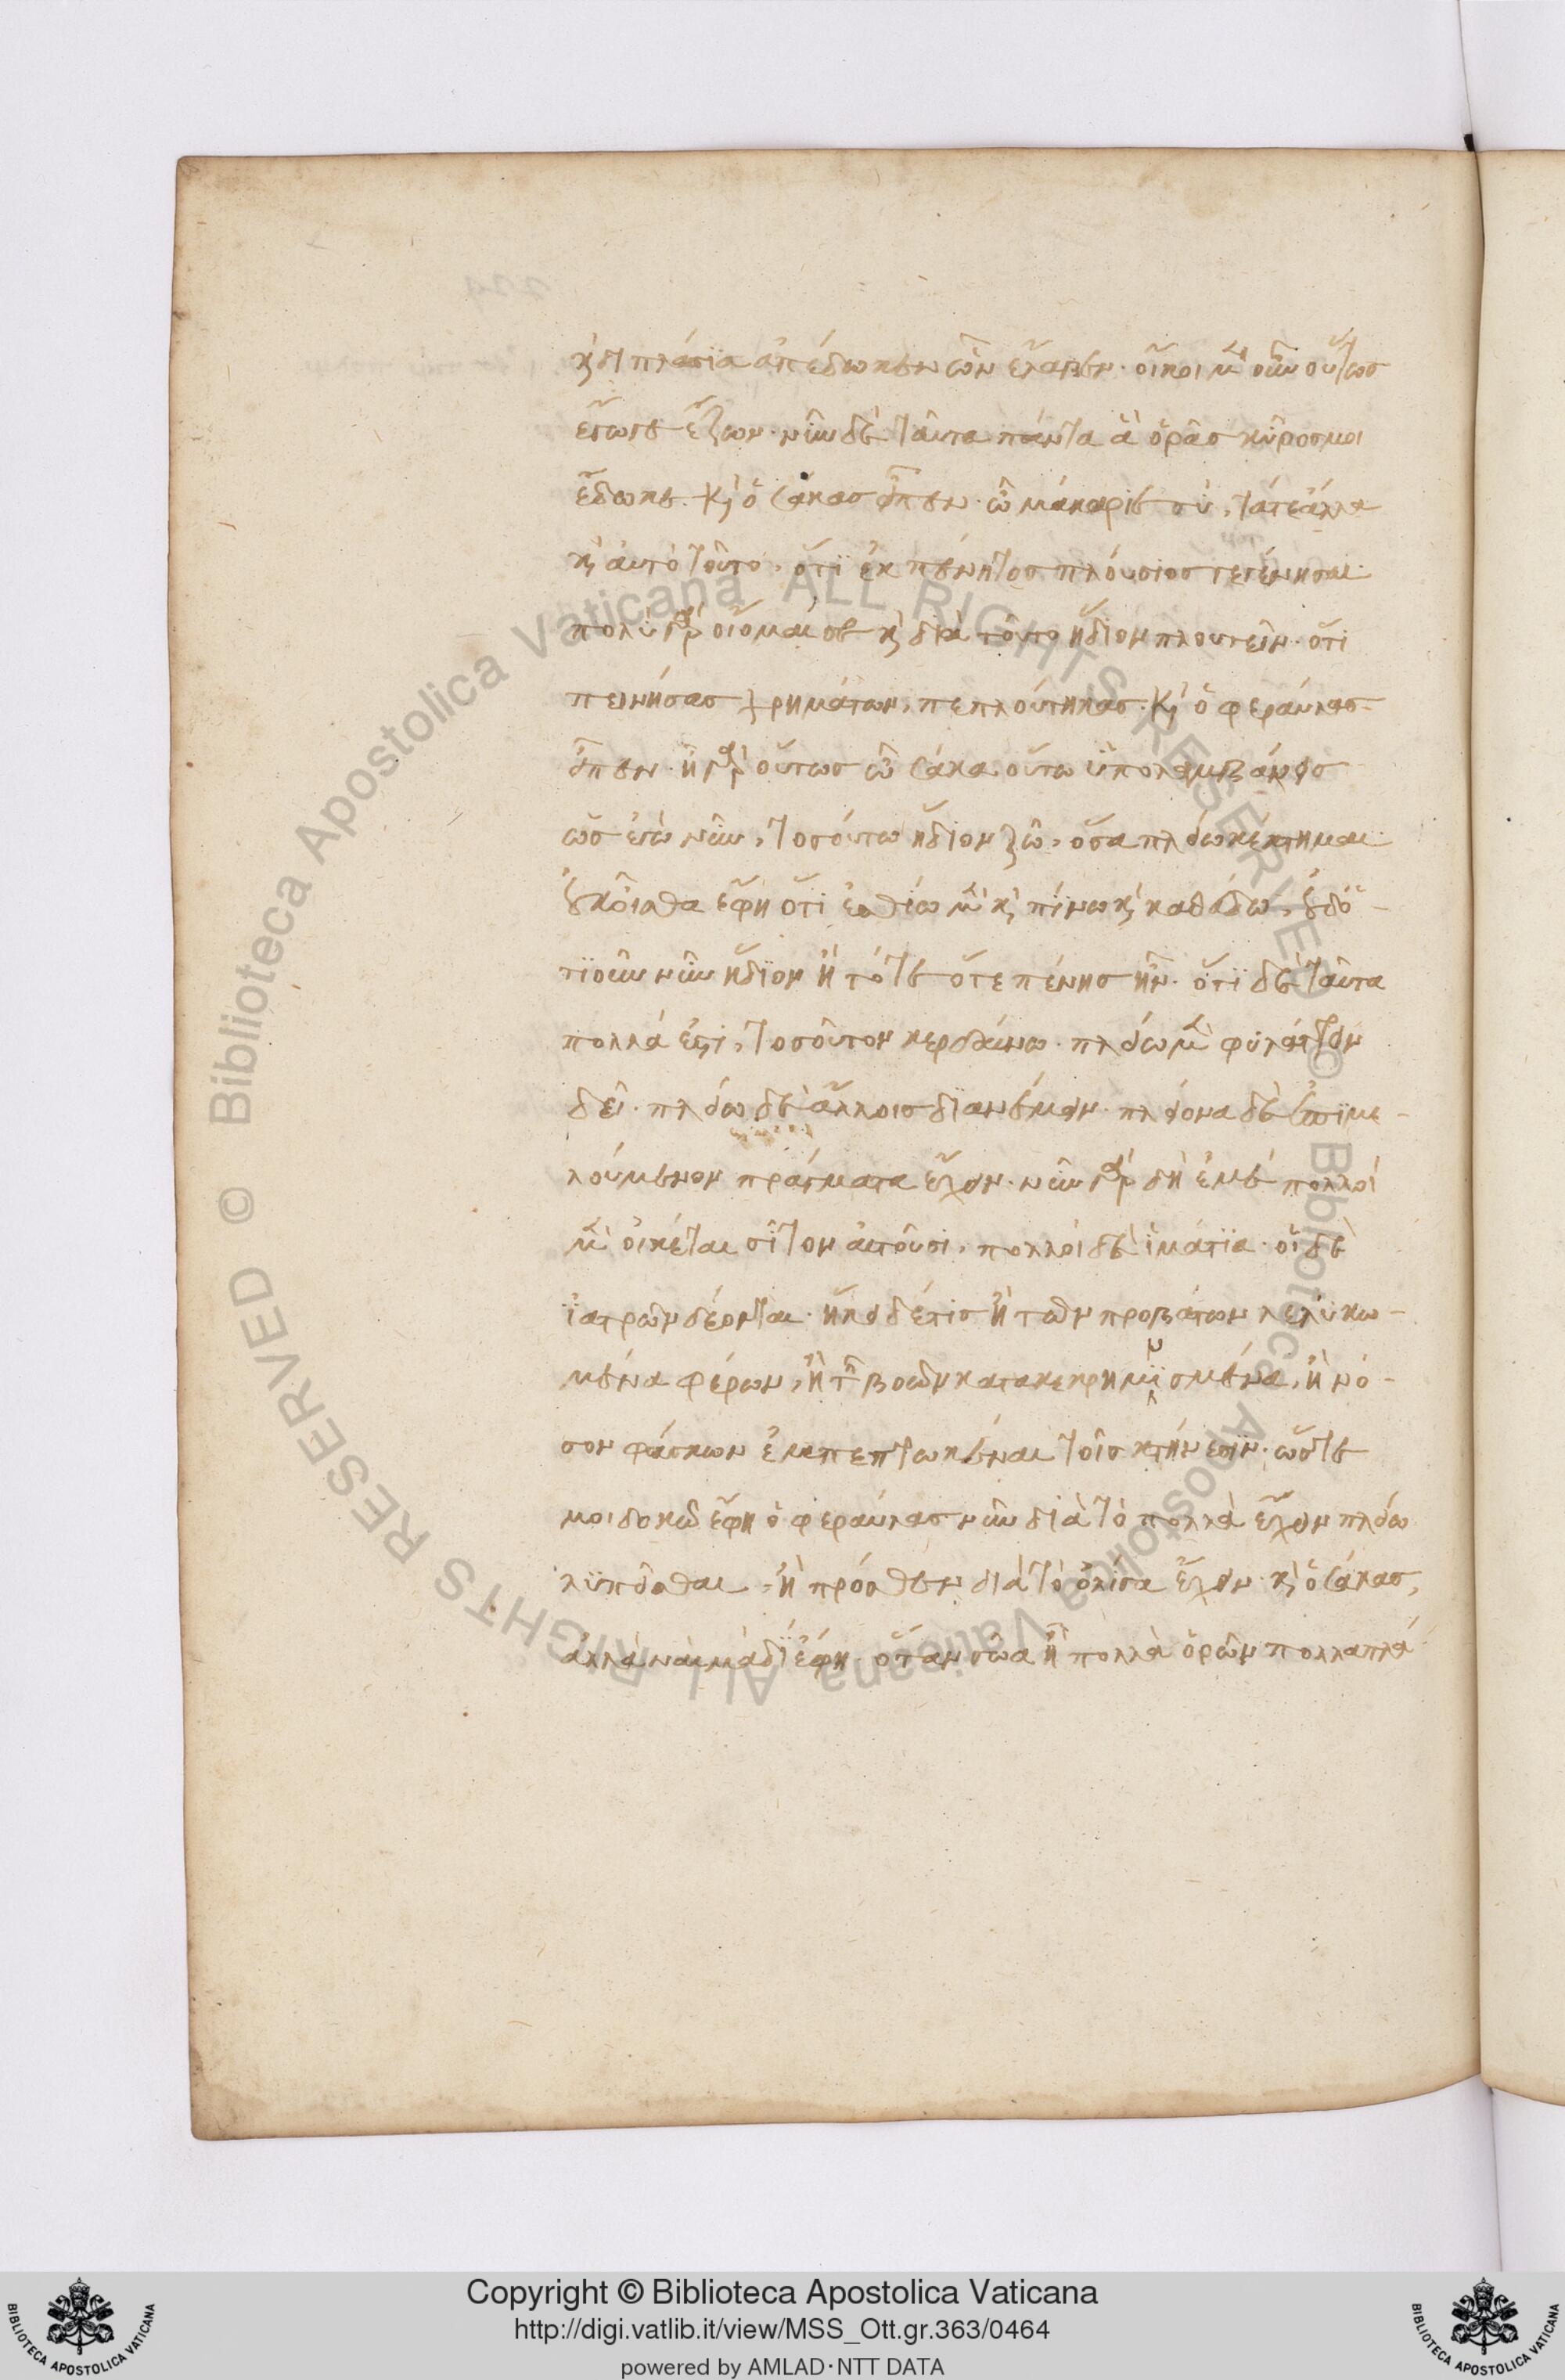 κ διπλάσϊα ἀπέδωκεν ὧν ἔλαβεν· οἴκοι μ οὖν οὕτως
ἔγωγε ἔζων· νῦν δὲ ταῦτα πάντα ἃ ὁρᾶς κῦρός μοι
ἔδωκε. κ ὁ σάκας εἶπεν· ὦ μακάριε σὺ, τά τε ἄλλα
κ αὐτὸ τοῦτο, ὅτϊ ἐκ πένητος πλούσιος γεγένησαι·
πολὺ γρ οἴομαί σε κ διὰ τοῦτο ἥδιον πλουτεῖν· ὅτι
πεινήσας χρημάτων, πεπλούτηκας· κ ὁ φεραύλας
εἶπεν· ἢ γρ οὕτως ὦ σάκα οὕτω ὑπολαμβάνεις
ὡς ἐγὼ νῦν, τοσούτω ἥδιον ζῶ, ὅσα πλείω κέκτημαι·
οὐκ οἶσθα ἔφη ὅτι ἐσθίω μ κ πίνω κ καθεύδω, οὐδ᾽ ὁ-
τϊοῦν νῦν ἥδϊον ἢ τότε ὅτε πένης ἦν· ὅτϊ δὲ ταῦτα
πολλά ἐστι, τοσοῦτον κερδαίνω· πλείω μ φυλάττειν
δεῖ· πλείω δὲ ἄλλοις διανέμειν· πλειόνα δὲ ἐπϊμε-
λούμενον πράγματα ἔχειν· νῦν γρ δὴ ἐμὲ πολλοὶ
μ οἰκέται σῖτον αἰτοῦσι, πολλοὶ δὲ ἱμάτϊα· οἱ δὲ
ϊατρῶν δέονται· ἥκει δέ τις ἢ τῶν προβάτων λελυκω-
μένα φέρων, ἢ τ βοῶν κατακεκρημνϊσμένα, ἢ νό-
σον φάσκων ἐμπεπτωκέναι τοῖς κτήνεσϊν· ὥστε
μοι δοκῶ ἔφη ὁ φεραύλας νῦν διὰ τὸ πολλὰ ἔχειν πλείω
λυπεῖσθαι, ἢ πρόσθεν διὰ τὸ ὀλίγα ἔχειν· κ ὁ σάκας,
ἀλλὰ ναὶ μὰ δΐ ἔφη· ὅταν σῶα ἦ πολλὰ ὁρῶν πολλαπλά
Copyright © Biblioteca Apostolica Vaticana
http://digi.vatlib.it/view/MSS_Ott.gr.363/0464
powered by AMLAD·NTT DATA
Biblioteca Apostolica Vaticana ALL RIGHTS RESERVED ©
Biblioteca Apostolica Vaticana ALL RIGHTS RESERVED ©
BIBLIOTECA APOSTOLICA VATICANA
BIBLIOTECA APOSTOLICA VATICANA